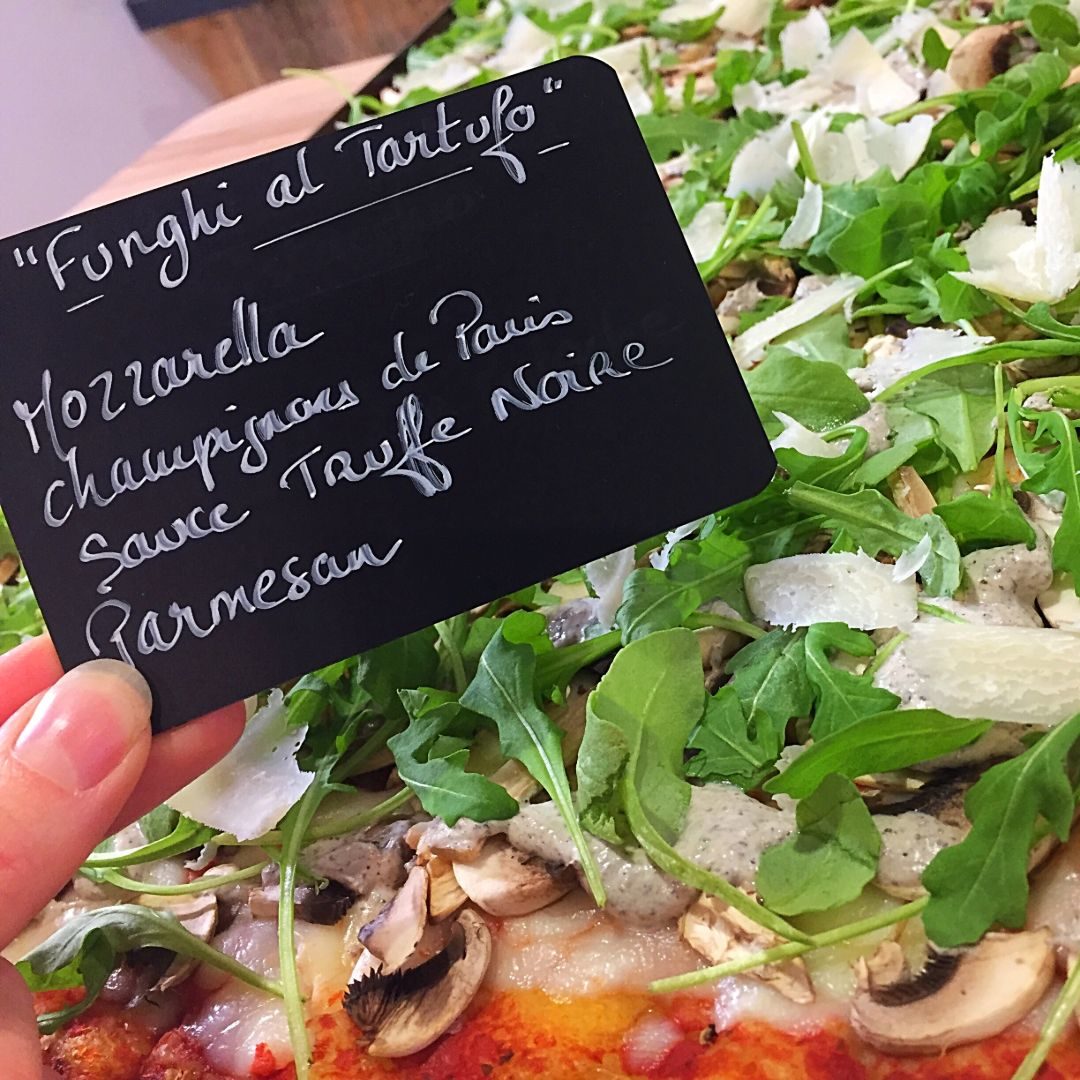 "Funghi al Tartufo"
Mozzarella
champignons de Paris
Sauce Truffe Noire
Parmesan